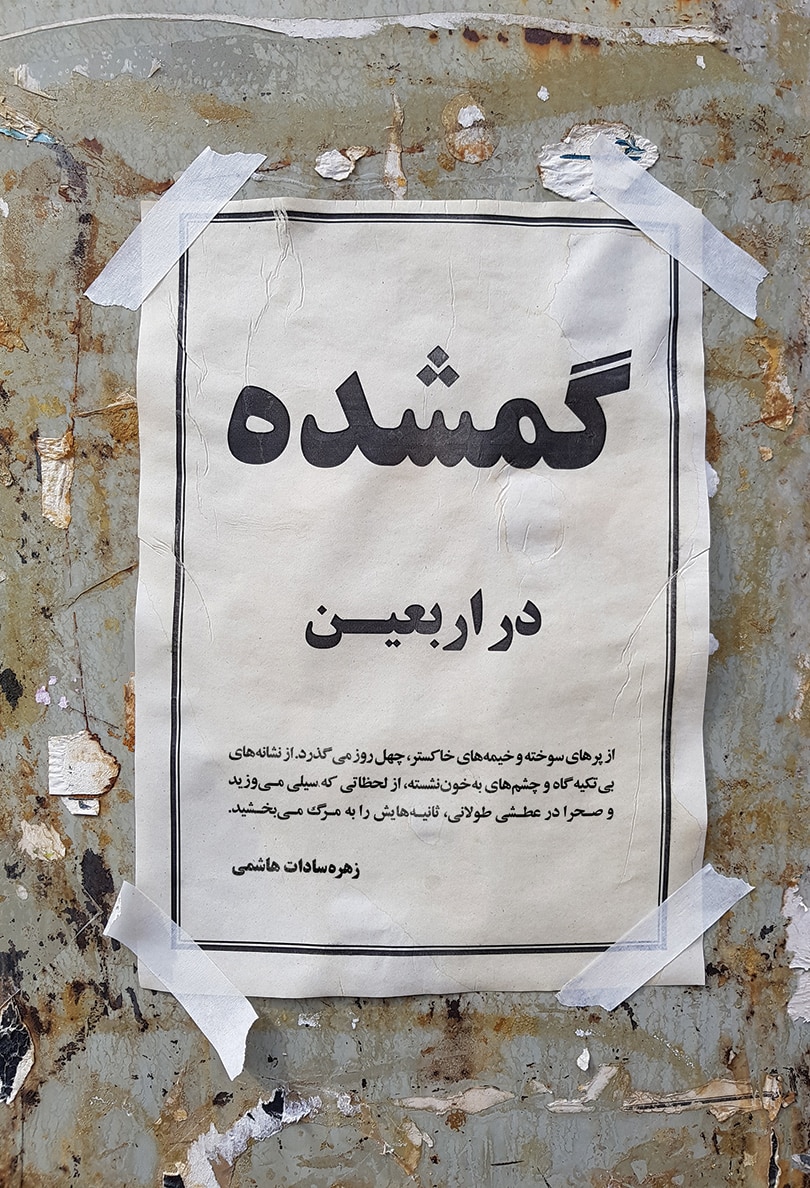 گمشده
در اربعین
از پرهای سوخته و خیمه‌های خاکستر، چهل روز می‌گذرد. از نشانه‌های
بی‌تکیه‌گاه و چشم‌های به‌خون‌نشسته، از لحظاتی که سیلی می‌وزید
و صحرا در عطشی طولانی، ثانیه‌هایش را به مرگ می‌بخشید.
زهره‌سادات هاشمی